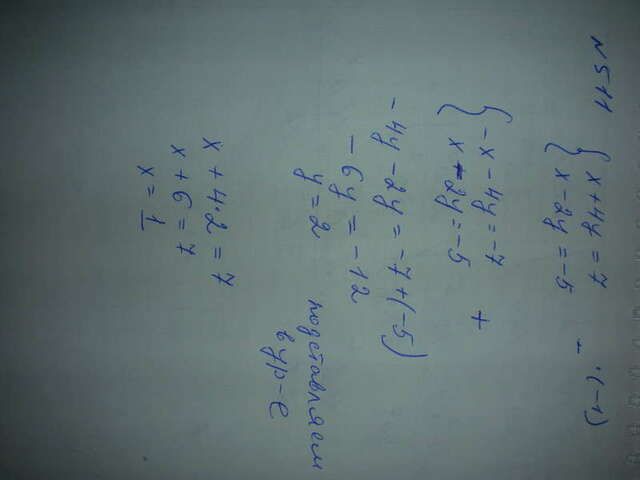 N 511
{ x + 4y = 7 · (-1)
{ x - 2y = -5
{ - x - 4y = -7 +
{ x - 2y = -5
- 4y - 2y = -7 + (-5)
- 6y = -12
y = 2 подставляем
выр-е
x + 4·2 = 7
x + 6 = 7
x = 1